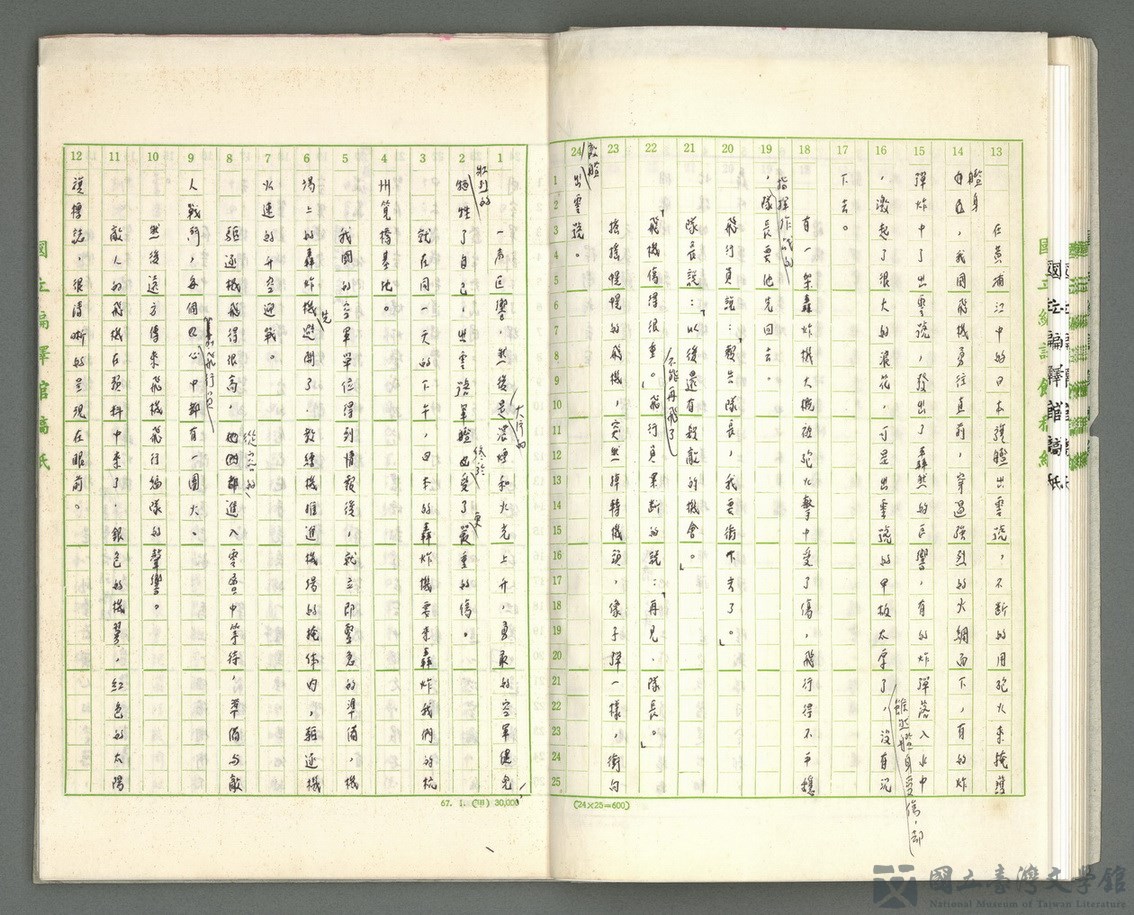 13
在黃浦江中的日本旗艦出雲號，不斷的用砲火來掩護
14
艦身
自己，我國飛機勇往直前，穿過強烈的火網而下，有的炸
15
彈炸中了出雲號，發出了轟然的巨響，有的炸彈落入水中
16
，激起了很大的浪花，可是出雲號的甲板太厚了，沒有沉
雖然艦身受傷，却
17
下去。
18
有一架轟炸機大概被砲火擊中受了傷，飛行得不平穩
19
指揮作戰的
，隊長要他先回去。
20
飛行員說：「報告隊長，我要衝下去了。」
21
隊長說：「以後還有殺敵的機會。」
22
「飛機傷得很重。」飛行員果斷的說：「再見，隊長。」
不能再飛了
23
搖搖幌幌的飛機，突然掉轉機頭，像子彈一樣，衝向
24
敵艦
出雲號。
1
一聲巨響，然後是濃煙和火光上升，勇敢的空軍健兒，
大片的
2
壯烈的
犧牲了自己，出雲號軍艦也受了嚴重的傷。
終於
更
3
就在同一天的下午，日本的轟炸機要來轟炸我們的杭
4
州筧橋基地。
5
我國的空軍單位得到情報後，就立即緊急的準備，機
6
場上的轟炸機避開了，教練機推進機場的掩体內，驅逐機
先
7
火速的升空迎戰。
8
驅逐機飛得很高，進入雲層中等待，準備與敵
從容的
9
人戰鬥，每個人心中都有一團火。
飛行員
10
然後遠方傳來飛機飛行編隊的聲響。
11
敵人的飛機在預料中來了，銀色的機翼，紅色的太陽
12
旗標誌，很清晰的呈現在眼前。
67. 1. (平) 30,000
(24×25=600)
國立編譯館稿紙
國立編譯館稿紙
國立臺灣文學館
National Museum of Taiwan Literature